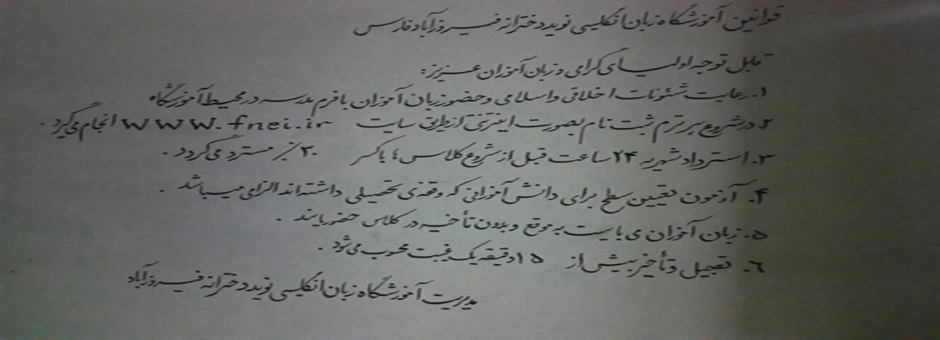 قوانین آموزشگاه زبان انگلیسی نوید دخترانه فیروزآباد فارس
قابل توجه اولیای گرامی و زبان آموزان عزیز:
۱. رعایت شئونات اخلاقی و اسلامی و حضور زبان آموزان با فرم مدرسه در محیط آموزشگاه
۲. در شروع هر ترم ثبت نام بصورت اینترنتی از طریق سایت www.fnei.ir انجام می گیرد.
۳. استرداد شهریه ۲۴ ساعت قبل از شروع کلاس ها با کسر ۲۰٪ مسترد می گردد.
۴. آزمون تعیین سطح برای دانش آموزانی که وقفه ی تحصیلی داشته اند الزامی میباشد.
۵. زبان آموزان می بایست به موقع و بدون تأخیر در کلاس حضور یابند.
۶. تعجیل و تأخیر بیش از ۱۵ دقیقه یک غیبت محسوب می شود.
مدیریت آموزشگاه زبان انگلیسی نوید دخترانه فیروزآباد